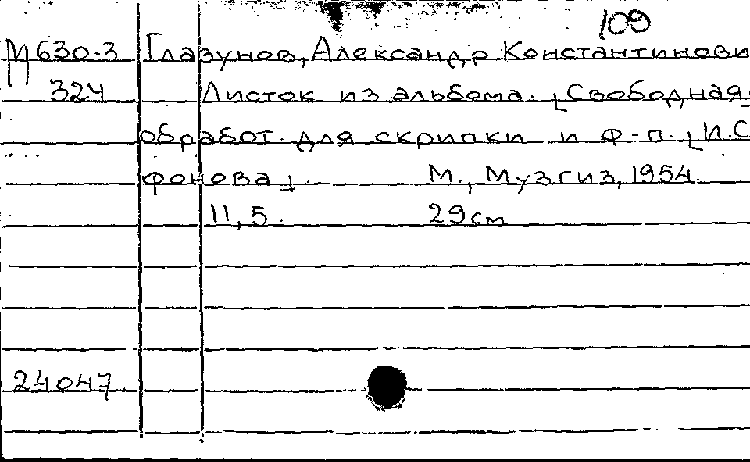 109
М630-3 Глазунов, Александр Константинови
324 Листок из альбома. [Свободная
обработ. для скрипки и ф-п. [И.С
фонова]. М., Музгиз, 1954
11, 5. 29см
24047.